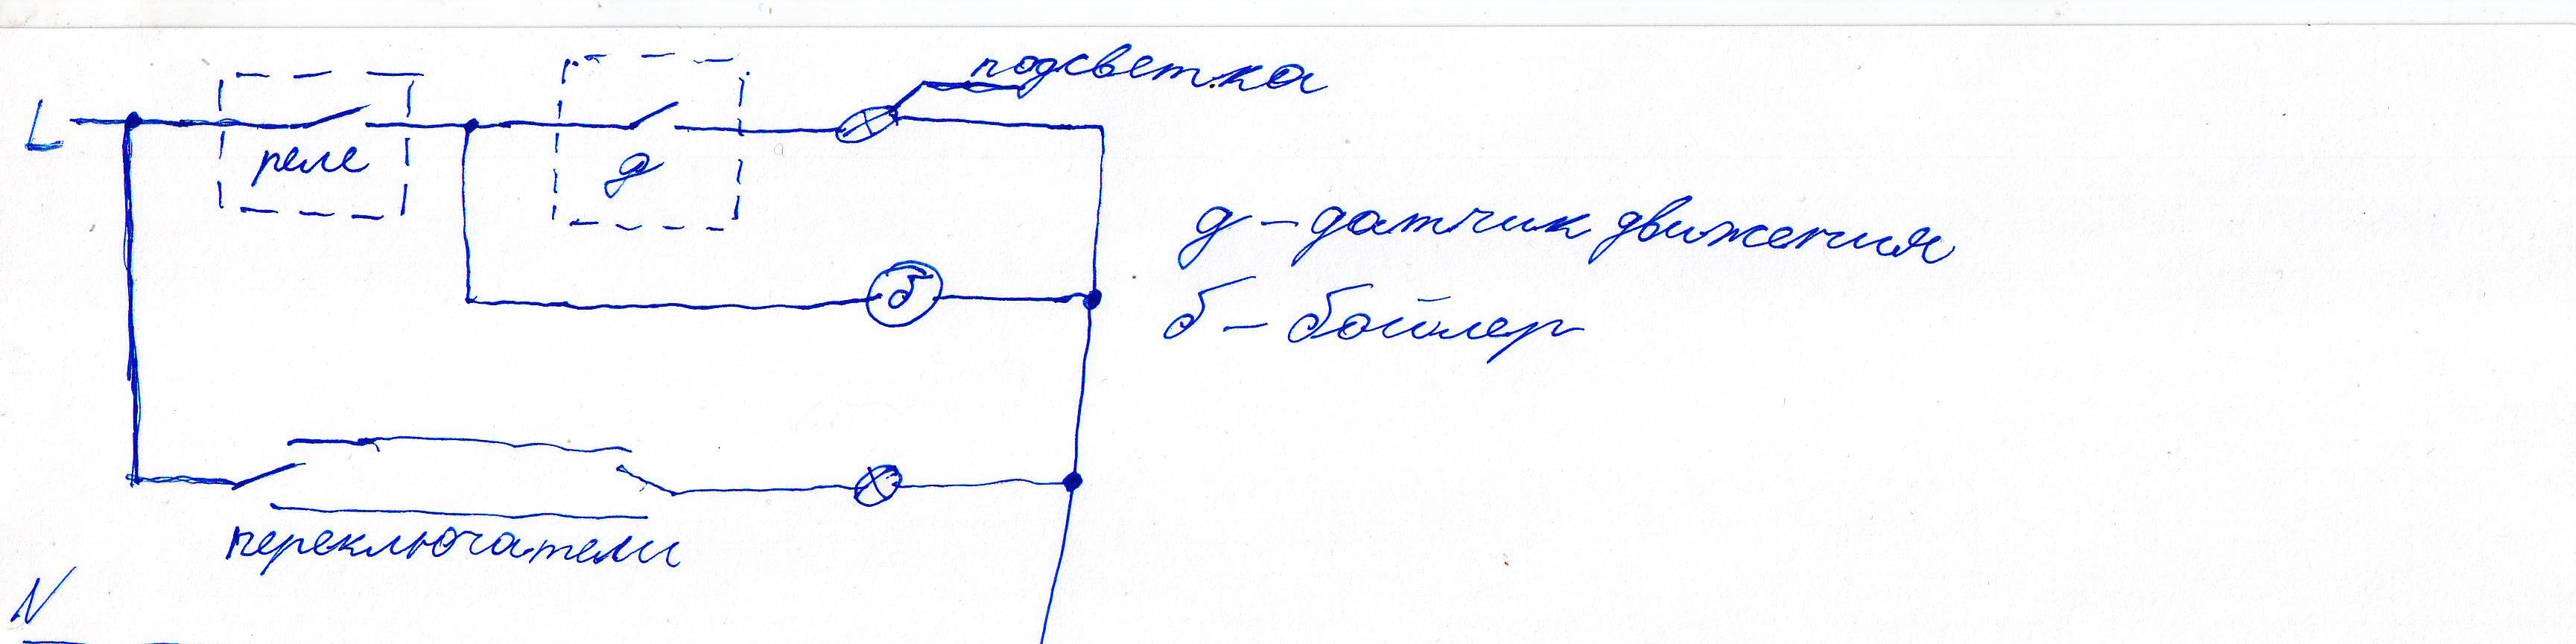 подсветка
L
реле
д
д - датчик движения
б
б - бойлер
переключатели
N